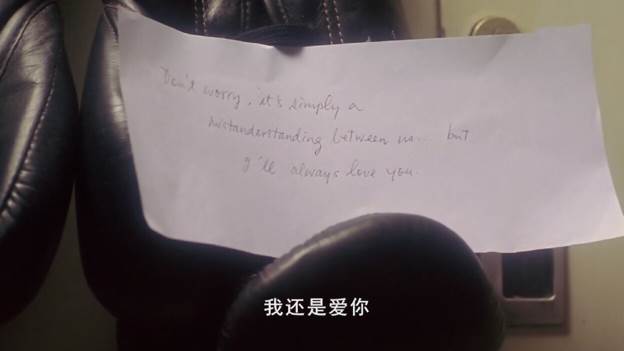 Don't worry, it's simply a
mistanderstanding between us... but
I'll always love you.
我还是爱你